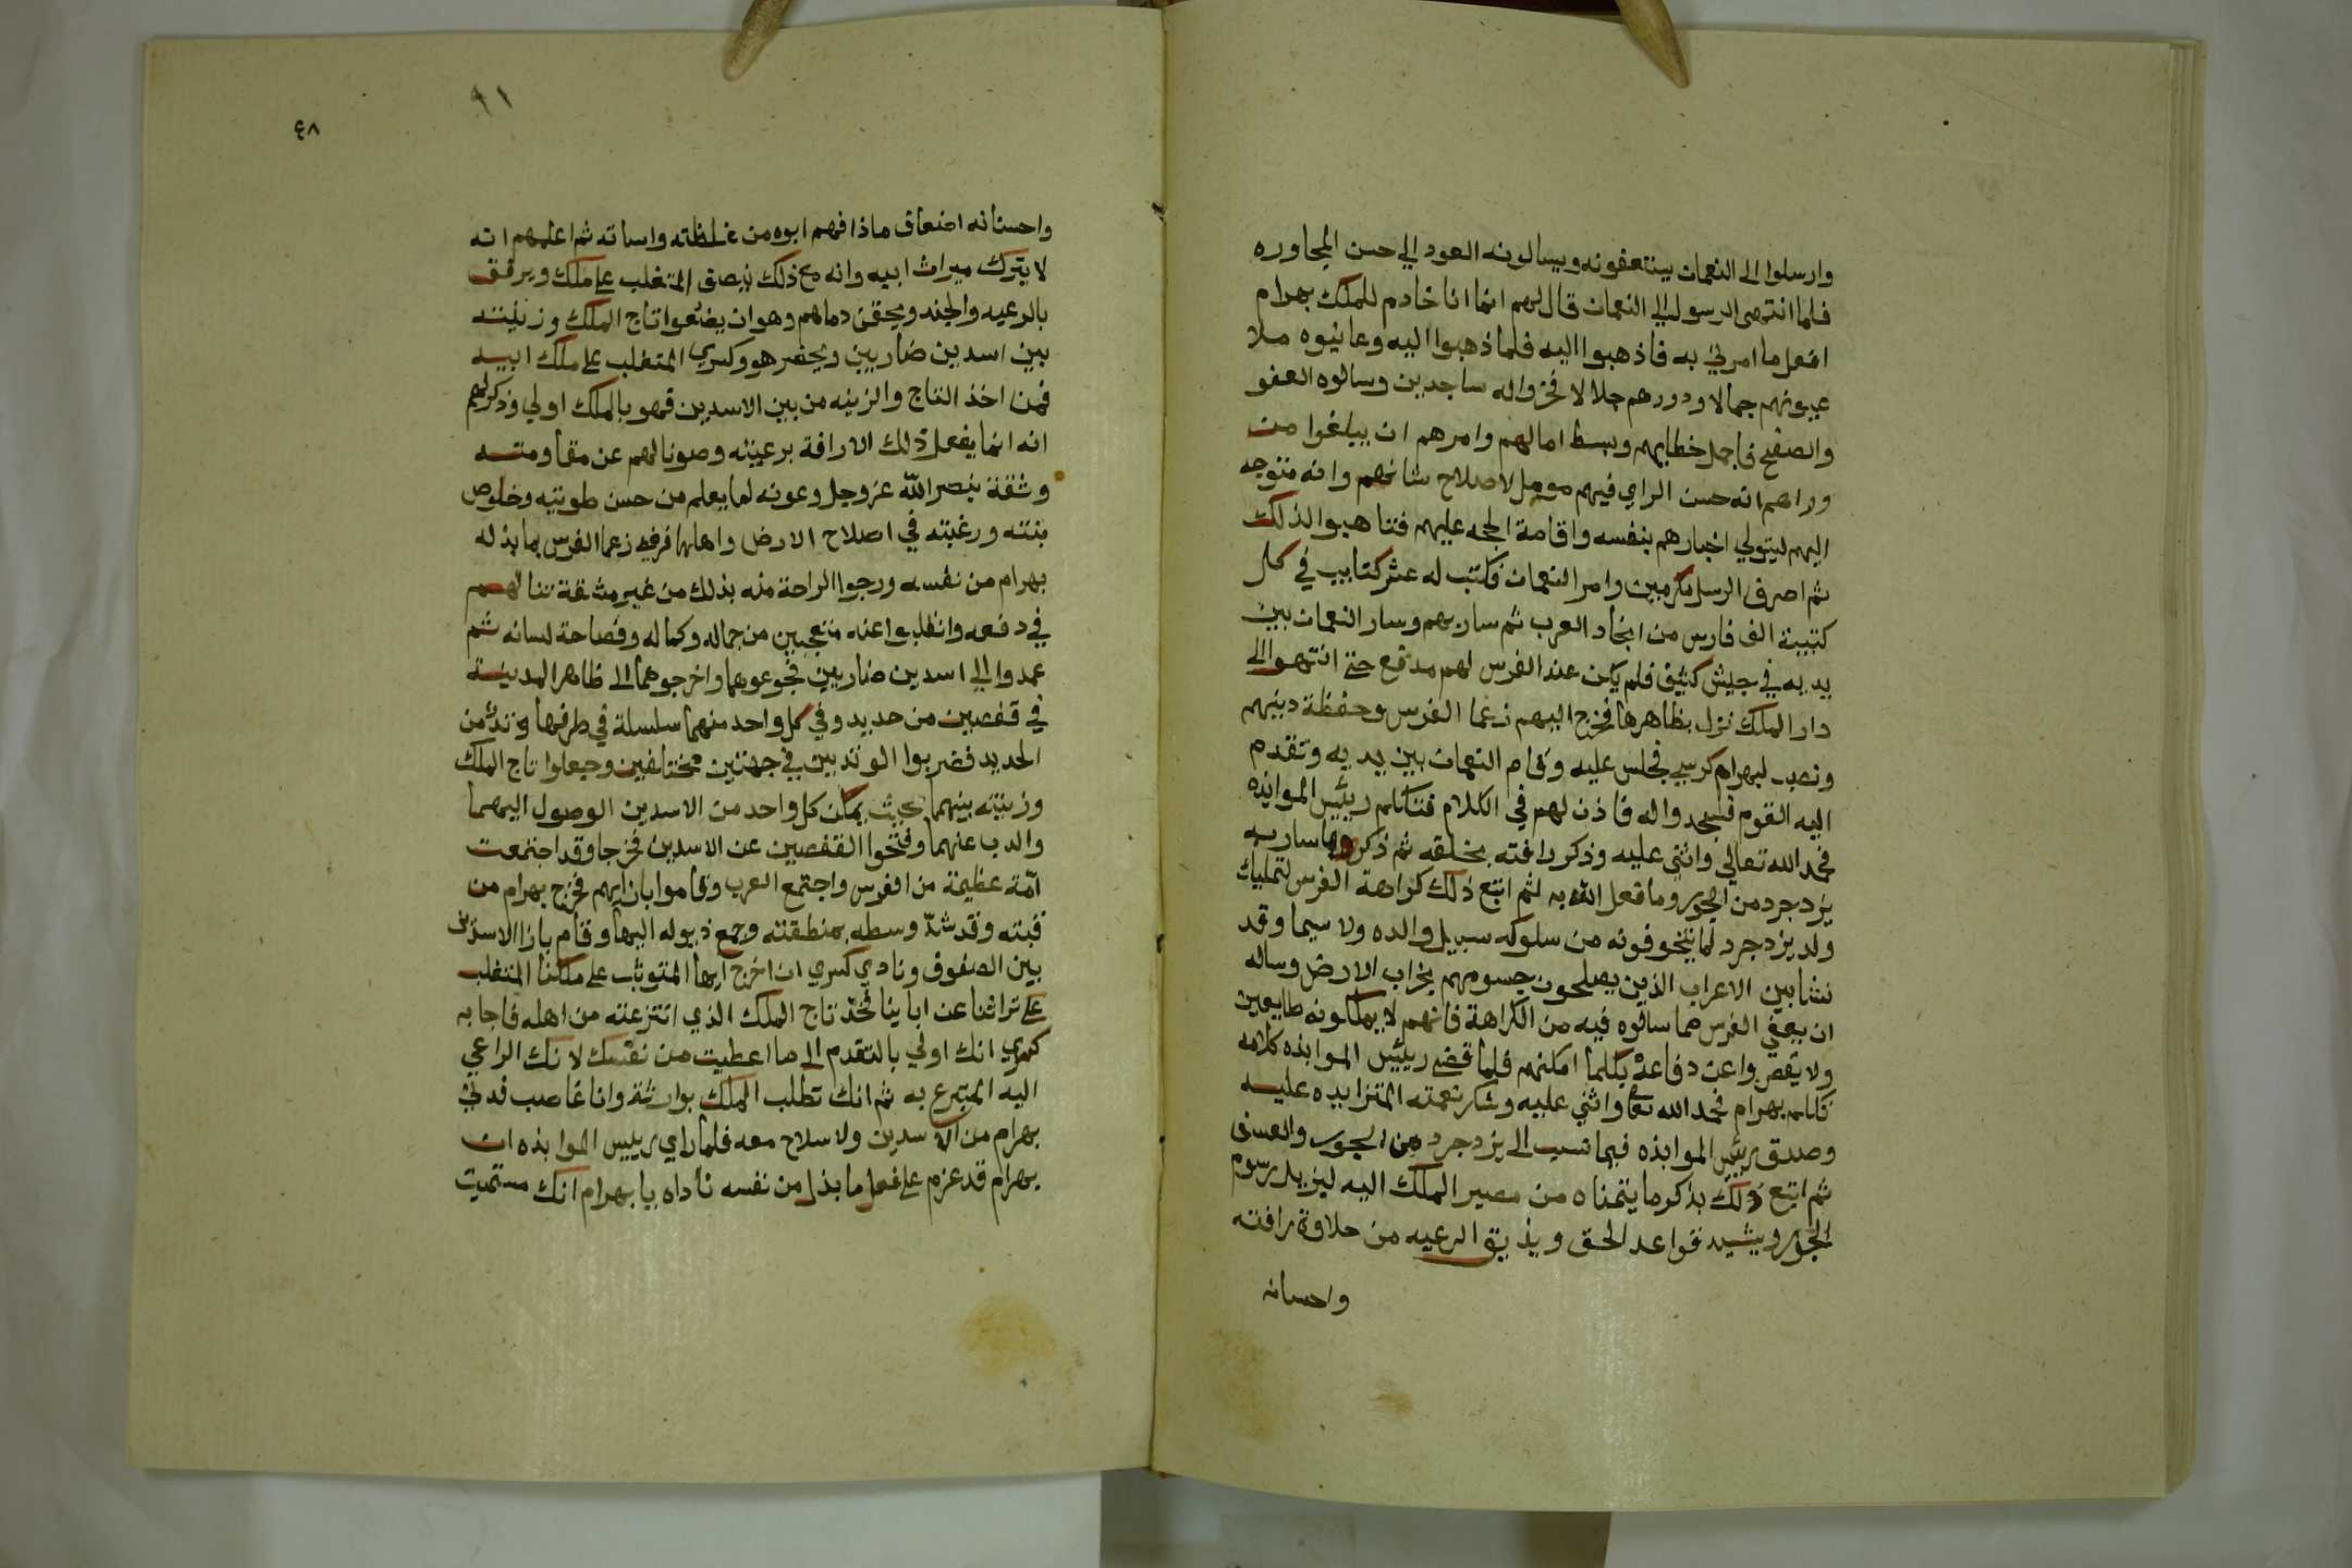 وارسلوا الى النعمان يستعفونه ويسالونه العود الي حسن المجاوره
فلما انتهى الرسول الي النعمان قال لهم انما انا خادم للملك بهرام
افعل ما امرني به فاذهبوا اليه فلما ذهبوا اليه وعاينوه ملا
عيونهم جمالا وصدورهم جلالا فخروا له ساجدين وسالوه العفو
والصفح فاجمل خطابهم وبسط امالهم وامرهم ان يبلغوا من
وراهم انه حسن الراي فيهم مومل لاصلاح شانهم وانه متوجه
اليهم ليتولي اخبارهم بنفسه واقامة الحجه عليهم فتاهبوا لذلك
ثم اصرف الرسل مكرمين وامر النعمان فكتب له عشر كتايب في كل
كتيبة الف فارس من انجاد العرب ثم سار بهم وسار النعمان بين
يديه في جيش كثيف فلم يكن عند الفرس لهم مدفع حتى انتهوا الى
دار الملك نزل بظاهرها فخرج اليهم زعما الفرس وحفظة دينهم
ونصب لبهرام كرسي فجلس عليه وقام النعمان بين يديه وتقدم
اليه القوم فسجدوا له فاذن لهم في الكلام فتكلم رييس الموابذه
فحمد الله تعالي واثني عليه وذكر رافته بخلقه ثم ذكر ما سار به
يزدجرد من الجور وما فعل الله به ثم اتبع ذلك كراهة الفرس لتمليك
ولد يزدجرد لما يتخوفونه من سلوكه سبيل والده ولا سيما وقد
نشا بين الاعراب الذين يصلحون جسومهم بخراب الارض وساله
ان يعفي الفرس مما سالوه فيه من الكراهة فانهم لا يملكونه طايعين
ولا يقصروا عن دفاعه بكلما امكنهم فلما قضى رييس الموابذه كلامه
تكلم بهرام فحمد الله تعا واثني عليه وشكر نعمته المتزايده عليه
وصدق رييس الموابذه فيما نسب الى يزدجرد من الجور والعسف
ثم اتبع ذلك بذكر ما يتمناه من مصير الملك اليه ليزيل رسوم
الجور ويشيد قواعد الحق ويذيق الرعيه من حلاوة رافته
واحسانه
٩١
٤٨
واحسانه اضعاف ماذاقهم ابوه من غلظته واساته ثم اعلمهم انه
لا يترك ميراث ابيه وانه مع ذلك ينصف المتغلب على ملك ويرفق
بالرعيه والجند ويحقن دماهم وهو ان يضعوا تاج الملك وزينته
بين اسدين ضاريين ويحضر هو وكسري المتغلب على ملك ابيه
فمن اخذ التاج والزينه من بين الاسدين فهو بالملك اولي وذكر لهم
انه انما يفعل ذلك الا رافة برعيته وصونا لهم عن مقاومته
وثقة بنصر الله عز وجل وعونه لما يعلم من حسن طويته وخلوص
نيته ورغبته في اصلاح الارض واهلها فرضي زعما الفرس بما بذله
بهرام من نفسه ورجوا الراحة منه بذلك من غير مشقة تنالهم
في دفعه وانقلبوا عنه متعجبين من جماله وكماله وفصاحة لسانه ثم
عمدوا الي اسدين ضاريين فجوعوهما واخرجوهما الى ظاهر المدينة
في قفصين من حديد وفي كل واحد منهما سلسلة في طرفها وتد من
الحديد فضربوا الوتدين في جهتين مختلفين وجعلوا تاج الملك
وزينته بينهما بحيث يمكن كل واحد من الاسدين الوصول اليهما
والدب عنهما وفتحوا القفصين عن الاسدين فخرجا وقد اجتمعت
امة عظيمة من الفرس واجتمع العرب وقاموا بازايهم فخرج بهرام من
قبته وقد شد وسطه بمنطقته وجمع ذيوله اليها وقام بازا الاسدين
بين الصفوف ونادي كسري ان اخرج ايها المتوثب على ملكنا المتغلب
على تراثنا عن اباينا فخذ تاج الملك الذي انتزعته من اهله فاجابه
كسري انك اولي بالتقدم الى ما اعطيت من نفسك لانك الراعي
اليه المتبرع به ثم انك تطلب الملك بوراثة وانا غاصب فدني
بهرام من الاسدين ولا سلاح معه فلما راي رييس الموابذه ان
بهرام قد عزم على فعل ما بذل من نفسه ناداه يا بهرام انك مستميت